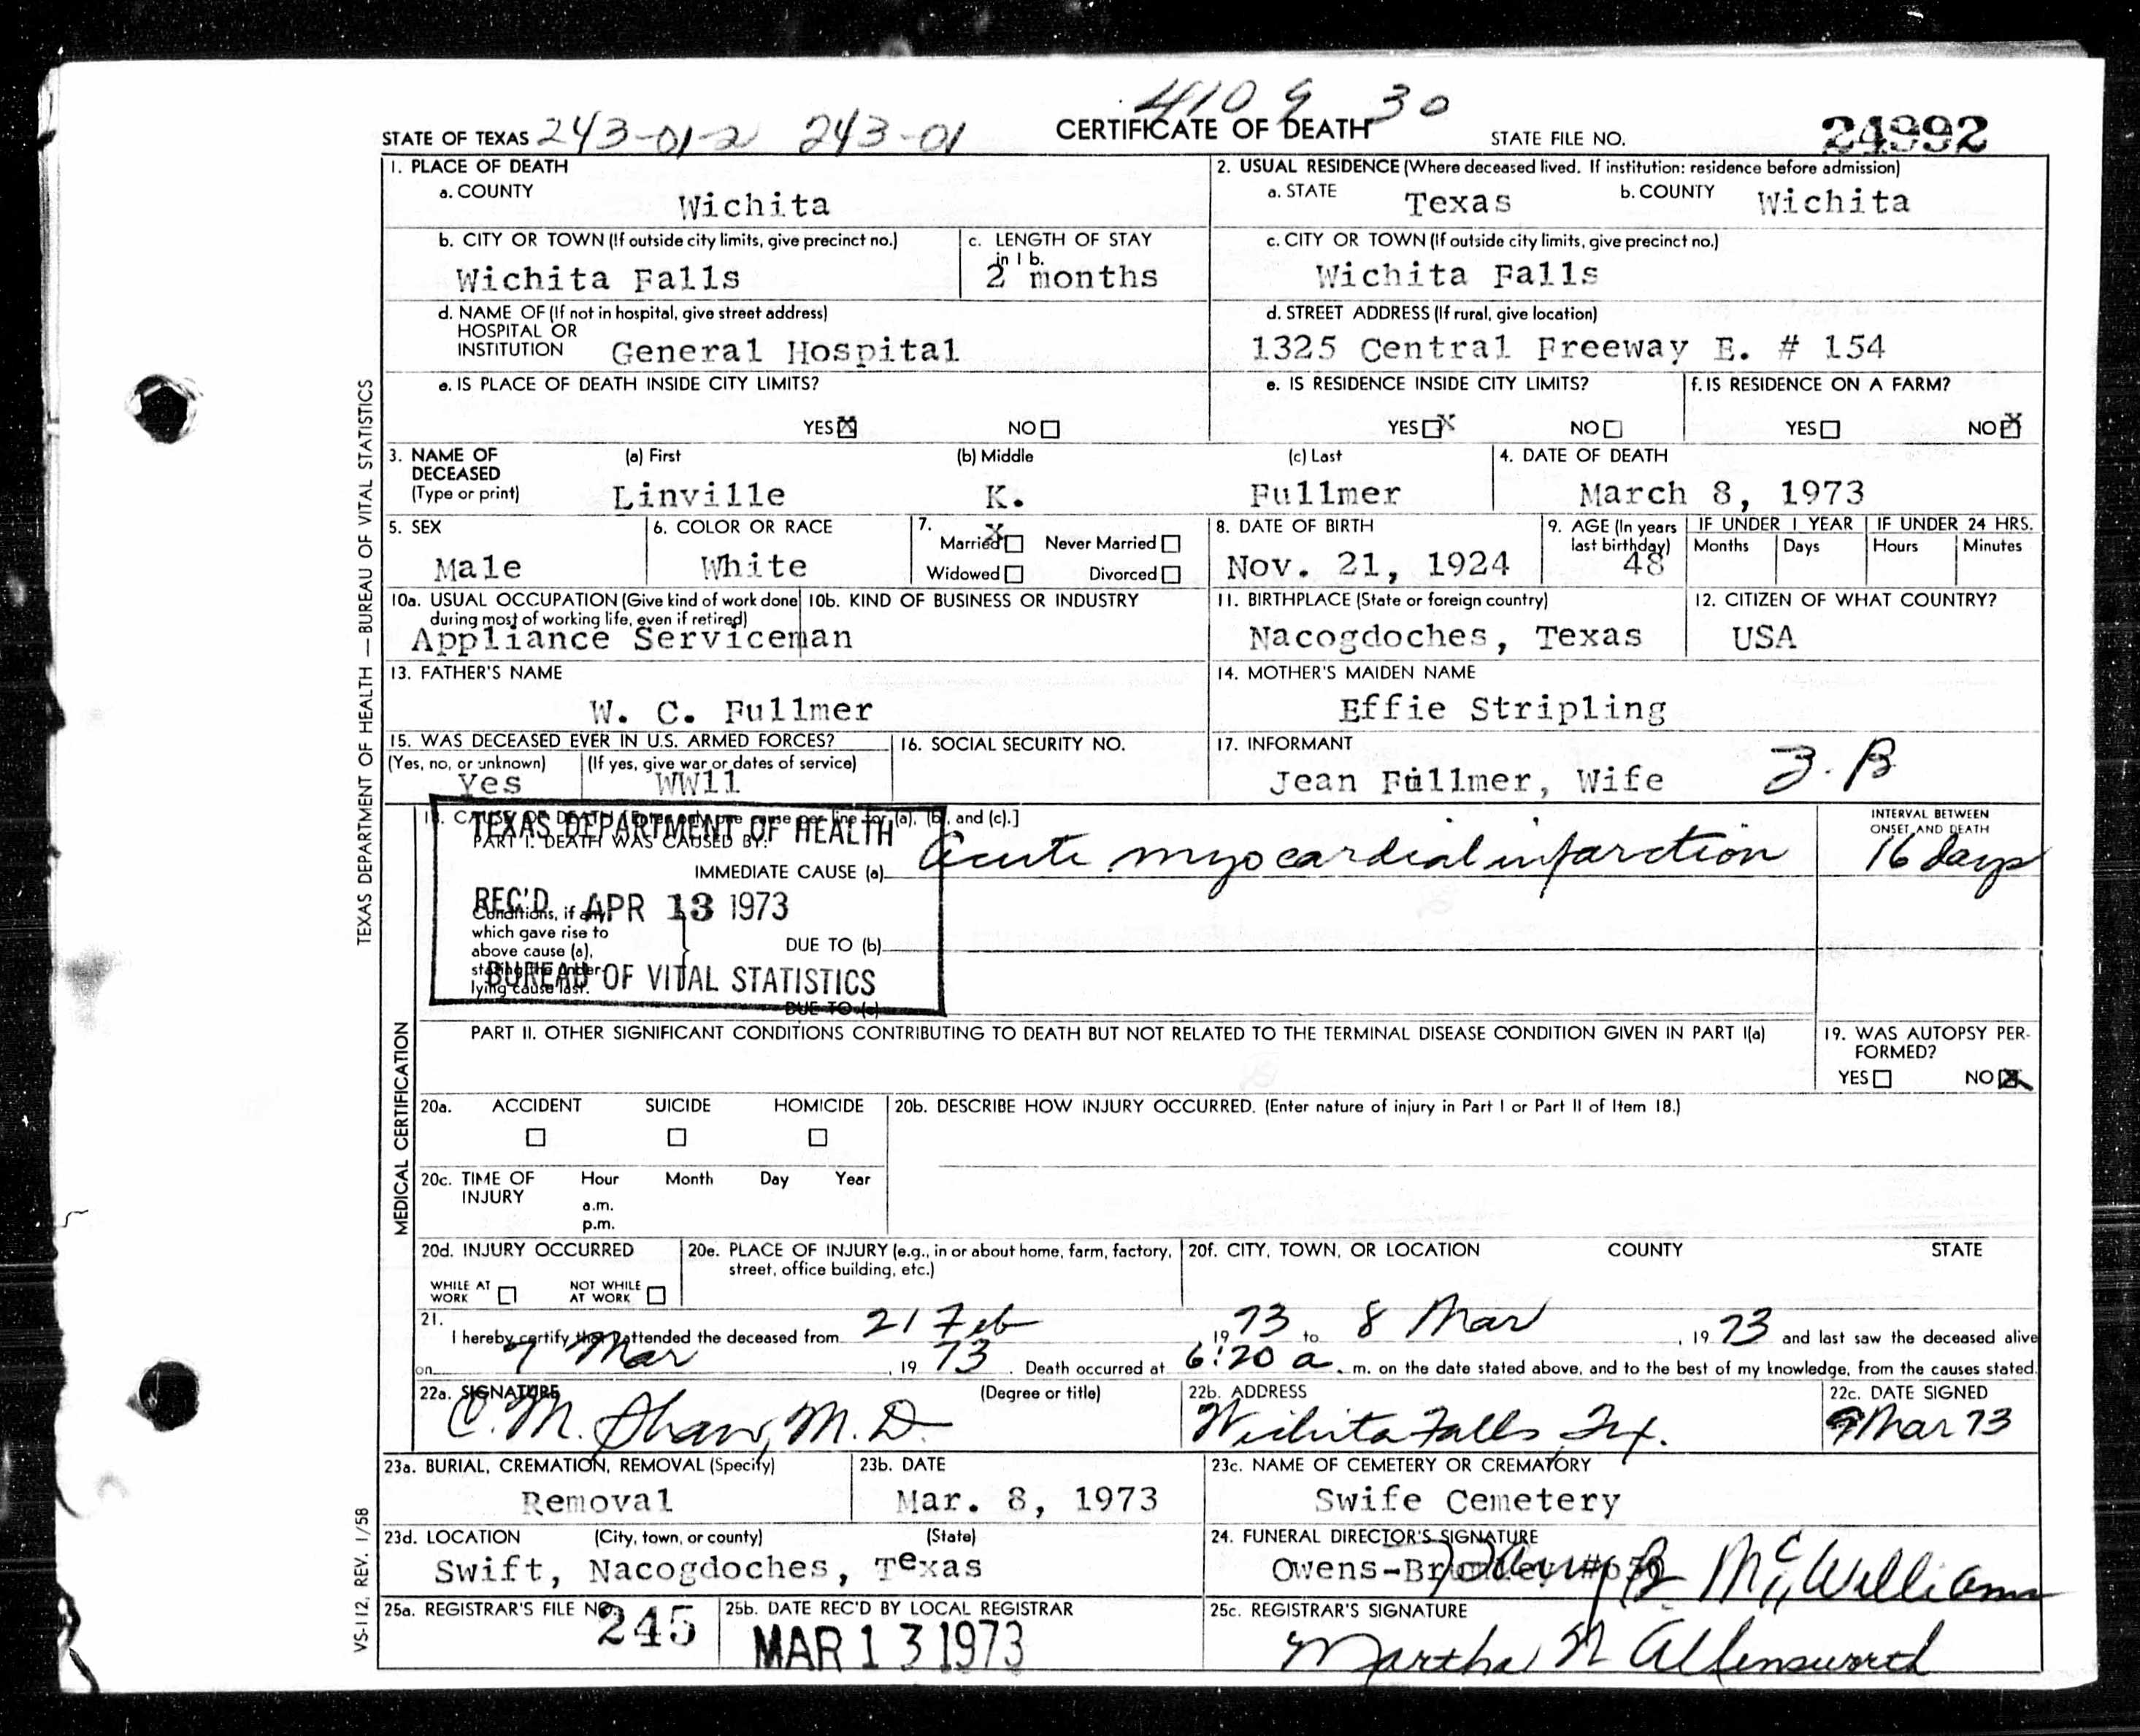 410 9 30
STATE OF TEXAS 243-01-2 243-01 CERTIFICATE OF DEATH STATE FILE NO. 24992
1. PLACE OF DEATH
a. COUNTY
Wichita
2. USUAL RESIDENCE (Where deceased lived. If institution: residence before admission)
a. STATE Texas b. COUNTY Wichita
b. CITY OR TOWN (If outside city limits, give precinct no.)
Wichita Falls
c. LENGTH OF STAY
in 1 b.
2 months
c. CITY OR TOWN (If outside city limits, give precinct no.)
Wichita Falls
d. NAME OF (If not in hospital, give street address)
HOSPITAL OR
INSTITUTION General Hospital
d. STREET ADDRESS (If rural, give location)
1325 Central Freeway E. # 154
e. IS PLACE OF DEATH INSIDE CITY LIMITS?
YES X NO
e. IS RESIDENCE INSIDE CITY LIMITS?
YES X NO
f. IS RESIDENCE ON A FARM?
YES NO X
3. NAME OF
DECEASED
(Type or print)
(a) First (b) Middle (c) Last
Linville K. Fullmer
4. DATE OF DEATH
March 8, 1973
5. SEX
Male
6. COLOR OR RACE
White
7.
X
Married Never Married
Widowed Divorced
8. DATE OF BIRTH
Nov. 21, 1924
9. AGE (In years
last birthday)
48
IF UNDER 1 YEAR IF UNDER 24 HRS.
Months Days Hours Minutes
10a. USUAL OCCUPATION (Give kind of work done
during most of working life, even if retired)
Appliance Serviceman
10b. KIND OF BUSINESS OR INDUSTRY
11. BIRTHPLACE (State or foreign country)
Nacogdoches, Texas
12. CITIZEN OF WHAT COUNTRY?
USA
13. FATHER'S NAME
W. C. Fullmer
14. MOTHER'S MAIDEN NAME
Effie Stripling
15. WAS DECEASED EVER IN U.S. ARMED FORCES?
(Yes, no, or unknown) (If yes, give war or dates of service)
Yes WW11
16. SOCIAL SECURITY NO.
17. INFORMANT
Jean Fullmer, Wife
18. CAUSE OF DEATH [Enter only one cause per line for (a), (b), and (c).]
PART I. DEATH WAS CAUSED BY:
IMMEDIATE CAUSE (a) Acute myocardial infarction
INTERVAL BETWEEN
ONSET AND DEATH
16 days
Conditions, if any
which gave rise to
above cause (a),
stating the under-
lying cause last.
DUE TO (b)
DUE TO (c)
TEXAS DEPARTMENT OF HEALTH
REC'D APR 13 1973
BUREAU OF VITAL STATISTICS
PART II. OTHER SIGNIFICANT CONDITIONS CONTRIBUTING TO DEATH BUT NOT RELATED TO THE TERMINAL DISEASE CONDITION GIVEN IN PART I(a)
19. WAS AUTOPSY PER-
FORMED?
YES NO X
20a. ACCIDENT SUICIDE HOMICIDE
20b. DESCRIBE HOW INJURY OCCURRED. (Enter nature of injury in Part I or Part II of Item 18.)
20c. TIME OF
INJURY
Hour Month Day Year
a.m.
p.m.
20d. INJURY OCCURRED
WHILE AT
WORK
NOT WHILE
AT WORK
20e. PLACE OF INJURY (e.g., in or about home, farm, factory,
street, office building, etc.)
20f. CITY, TOWN, OR LOCATION COUNTY STATE
21.
I hereby certify that I attended the deceased from 21 Feb, 1973 to 8 Mar, 1973 and last saw the deceased alive
on 7 Mar, 1973. Death occurred at 6:20 a.m. on the date stated above, and to the best of my knowledge, from the causes stated.
22a. SIGNATURE (Degree or title)
C. M. Shaw, M. D.
22b. ADDRESS
Wichita Falls, Tex.
22c. DATE SIGNED
9 Mar 73
23a. BURIAL, CREMATION, REMOVAL (Specify)
Removal
23b. DATE
Mar. 8, 1973
23c. NAME OF CEMETERY OR CREMATORY
Swife Cemetery
23d. LOCATION (City, town, or county) (State)
Swift, Nacogdoches, Texas
24. FUNERAL DIRECTOR'S SIGNATURE
Owens-Brumley B. McWilliams
25a. REGISTRAR'S FILE NO.
245
25b. DATE REC'D BY LOCAL REGISTRAR
MAR 13 1973
25c. REGISTRAR'S SIGNATURE
Martha N Allensworth
TEXAS DEPARTMENT OF HEALTH — BUREAU OF VITAL STATISTICS
MEDICAL CERTIFICATION
VS-112, REV. 1/58